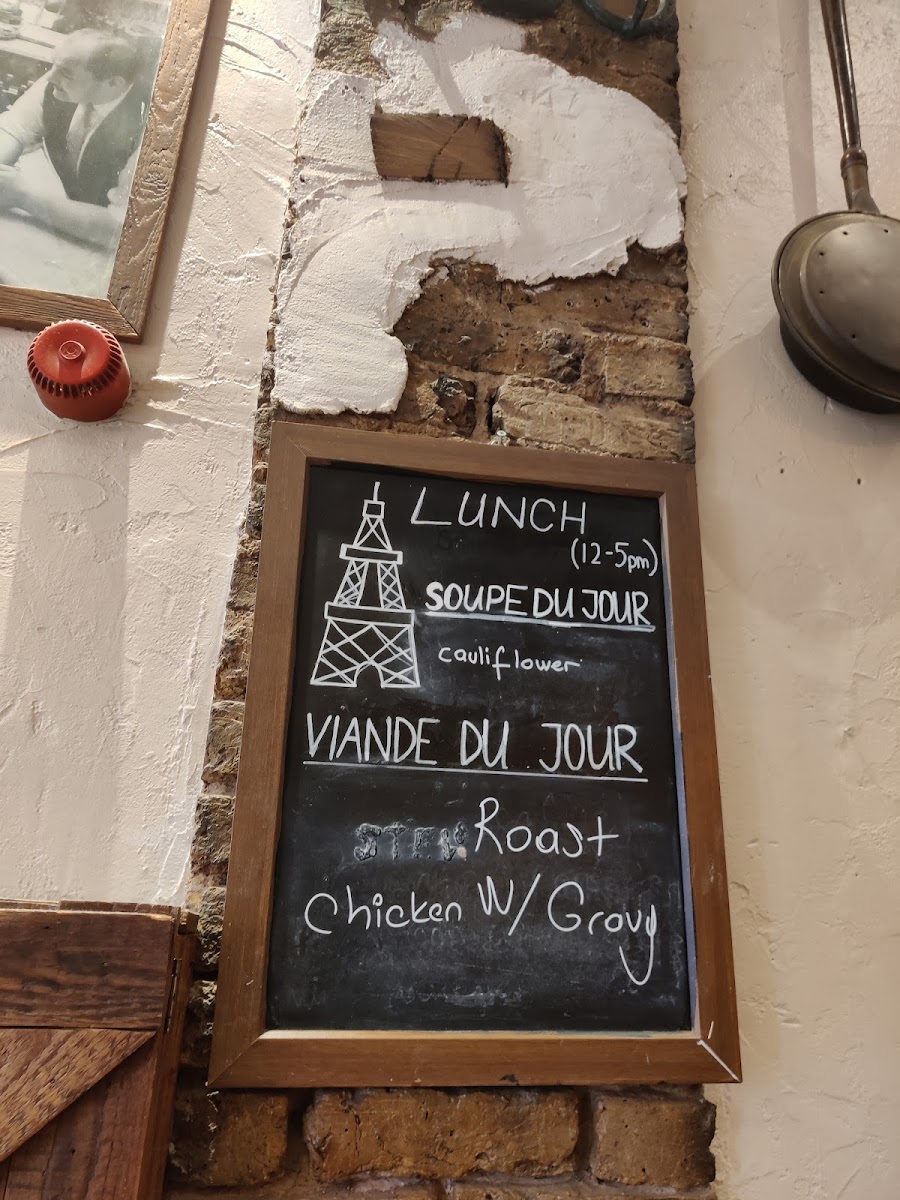 LUNCH
(12-5pm)
SOUPE DU JOUR
cauliflower
VIANDE DU JOUR
Roast
Chicken W/ Gravy